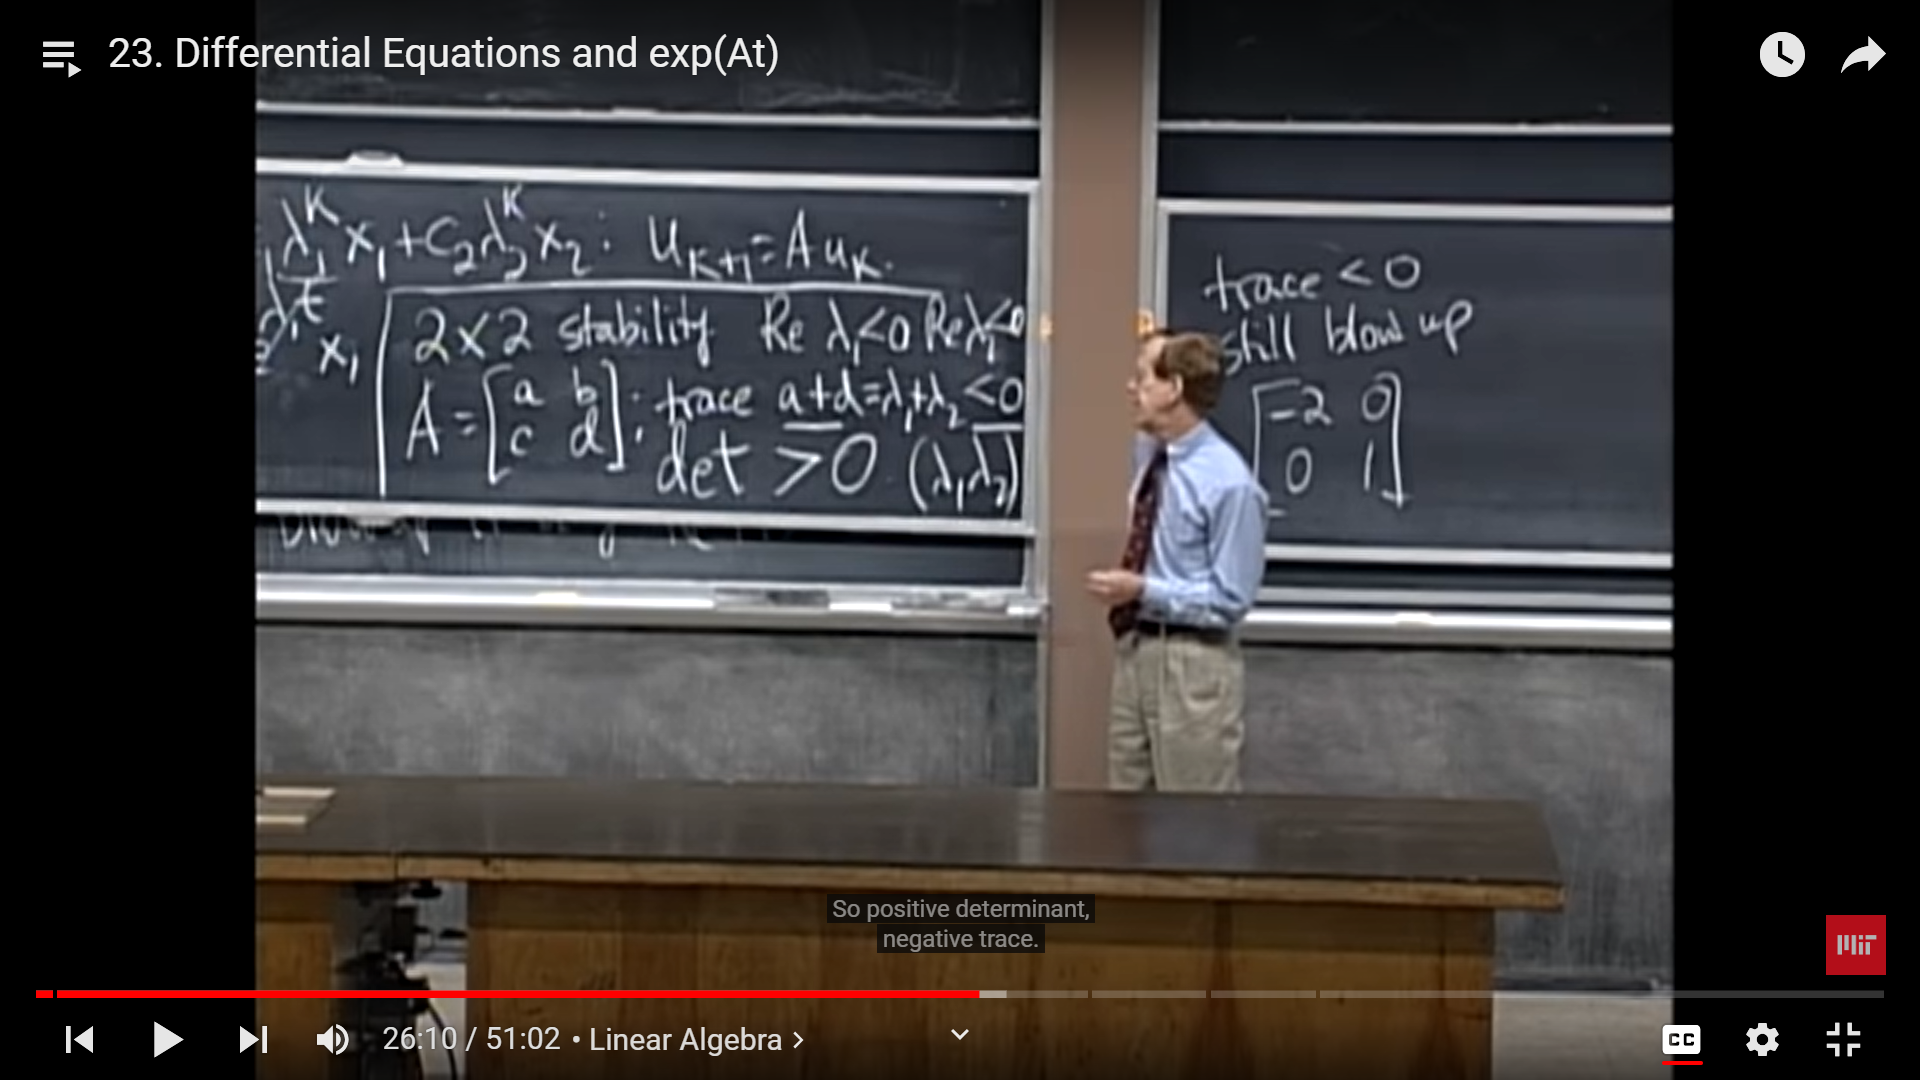 23. Differential Equations and exp(At)
λ₁ᴷ x₁ + C₂ λ₂ᴷ x₂ : u_{K+1} = A u_K.
x₁
2×2 stability Re λ₁<0 Re λ₁<0
A = [a b; c d] : trace a+d = λ₁+λ₂ <0
det >0. (λ₁λ₂)
trace < 0
still blow up
[-2 0
0 1]
So positive determinant,
negative trace.
MIT
26:10 / 51:02 • Linear Algebra >
CC